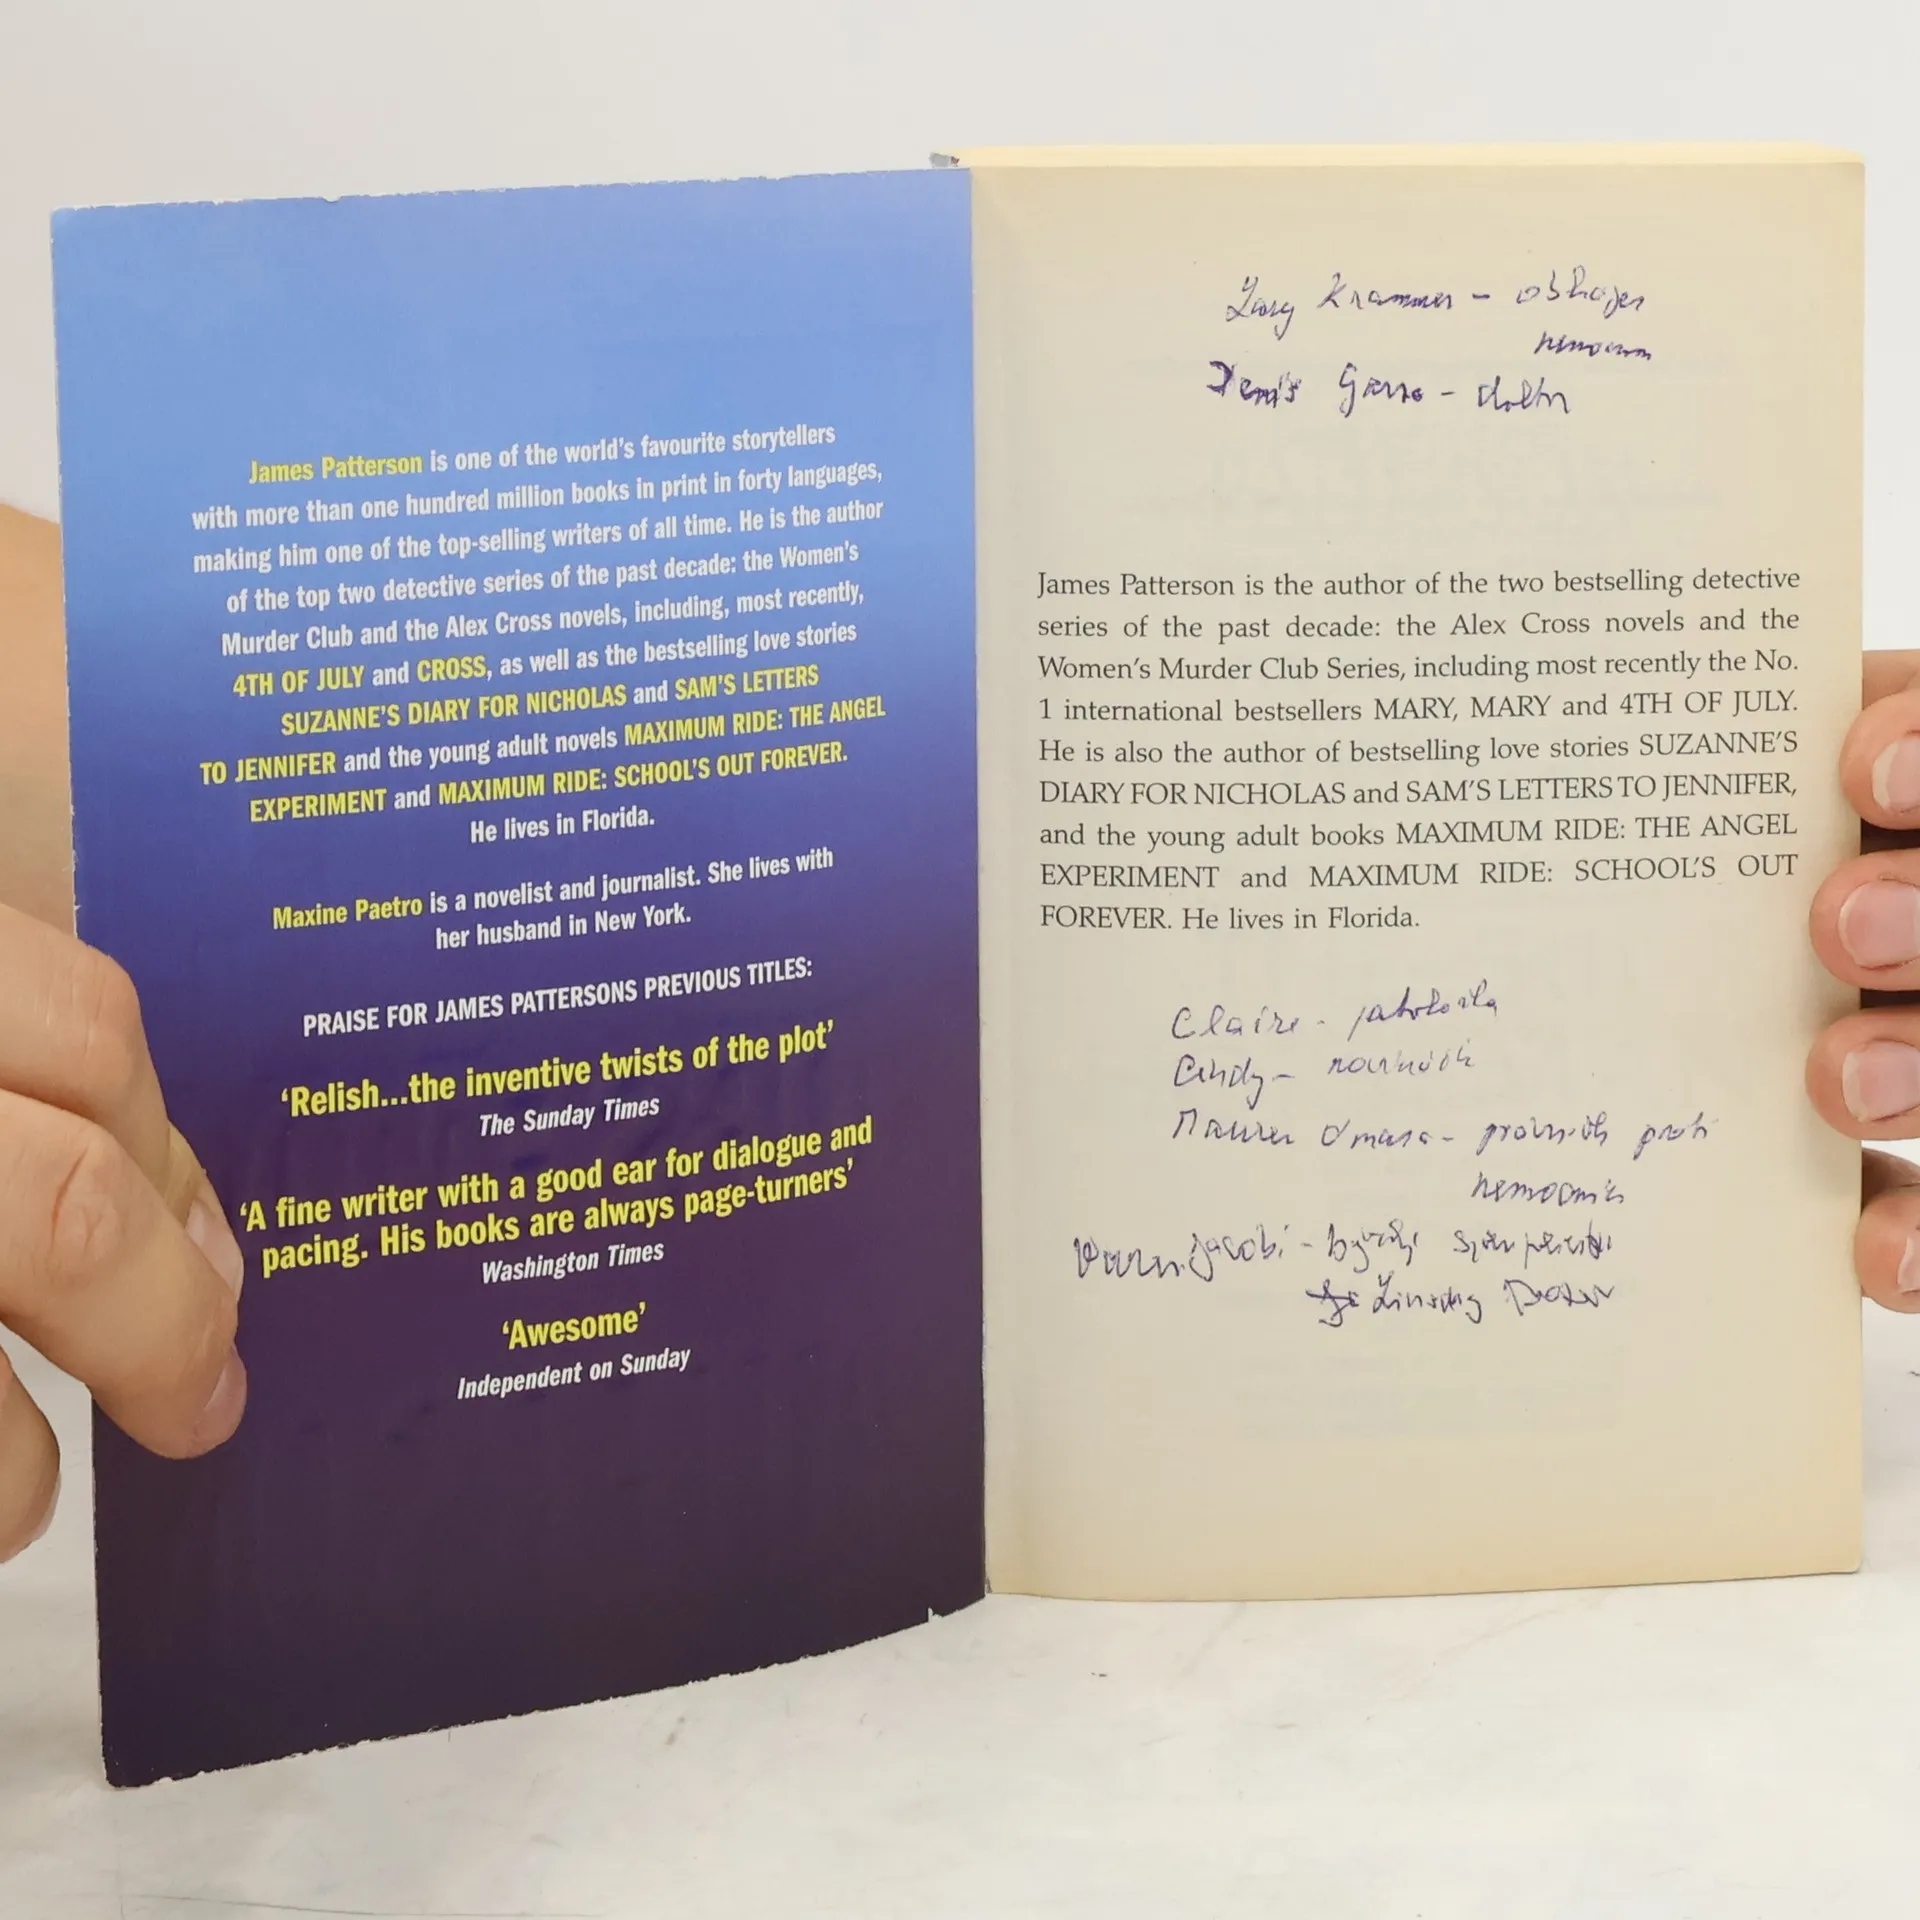 James Patterson is one of the world's favourite storytellers
with more than one hundred million books in print in forty languages,
making him one of the top-selling writers of all time. He is the author
of the top two detective series of the past decade: the Women's
Murder Club and the Alex Cross novels, including, most recently,
4TH OF JULY and CROSS, as well as the bestselling love stories
SUZANNE'S DIARY FOR NICHOLAS and SAM'S LETTERS
TO JENNIFER and the young adult novels MAXIMUM RIDE: THE ANGEL
EXPERIMENT and MAXIMUM RIDE: SCHOOL'S OUT FOREVER.
He lives in Florida.
Maxine Paetro is a novelist and journalist. She lives with
her husband in New York.
PRAISE FOR JAMES PATTERSONS PREVIOUS TITLES:
'Relish...the inventive twists of the plot'
The Sunday Times
'A fine writer with a good ear for dialogue and
pacing. His books are always page-turners'
Washington Times
'Awesome'
Independent on Sunday
Krammer - obhajce
Denis -
James Patterson is the author of the two bestselling detective
series of the past decade: the Alex Cross novels and the
Women's Murder Club Series, including most recently the No.
1 international bestsellers MARY, MARY and 4TH OF JULY.
He is also the author of bestselling love stories SUZANNE'S
DIARY FOR NICHOLAS and SAM'S LETTERS TO JENNIFER,
and the young adult books MAXIMUM RIDE: THE ANGEL
EXPERIMENT and MAXIMUM RIDE: SCHOOL'S OUT
FOREVER. He lives in Florida.
Claire - patoložka
Cindy -
O'mara - právnička proti
Jacobi - bývalý